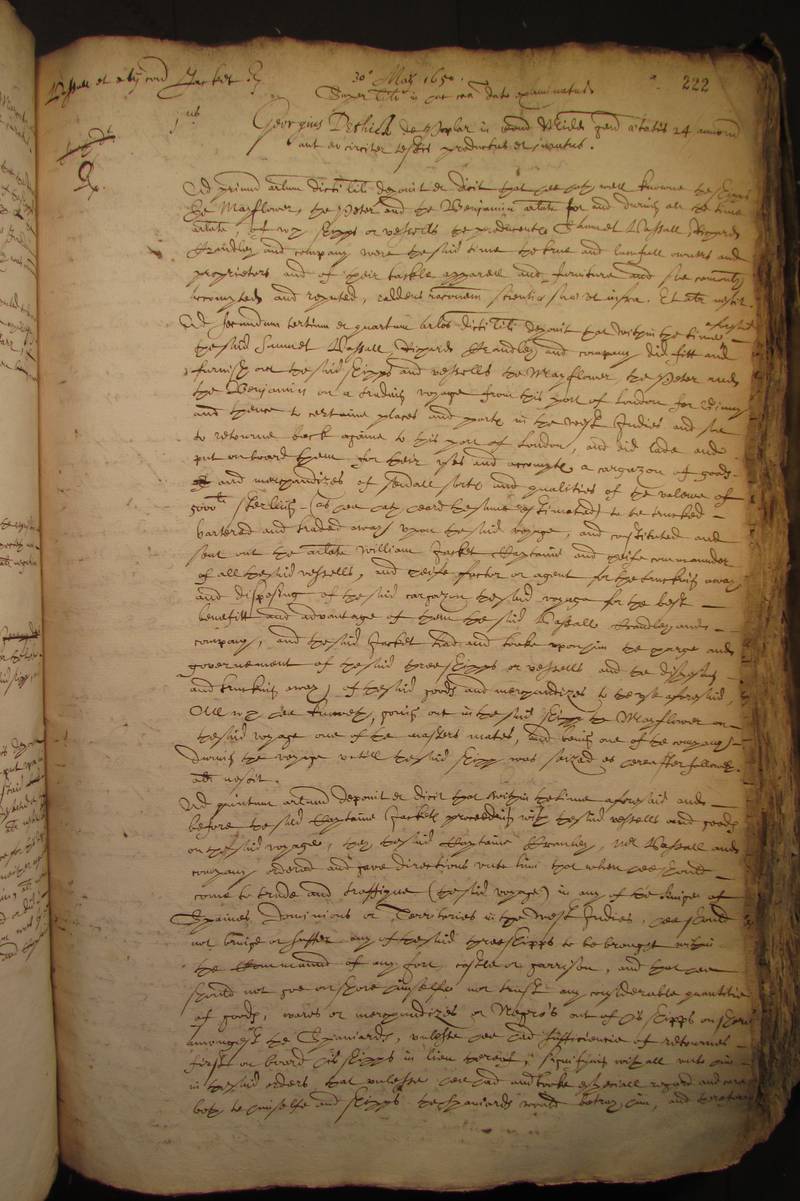 30o May 1650.
222
Vassall et aly con Jacket
Super lib in hac ca dato examinatus
jus
Georgius Deshill de Poplar in com etatis 24 annorum
aut eo circiter testis productus et juratus.
Ad primum arlum dicti lib deponit et dicit that hee hath well knowne the shipps
the Mayflower, the Peter and the Benjamin arlate for and during all the time
arlate of wch shipps or vessells the producents Samuel Vassall, Richard
Crandley and company were the said time the true and lawfull owners and
proprietors and of their tackle apparell and furniture and soe commonly
accompted and reputed, reddens racionem scientie sue ut infra. Et alr nescit
Ad secundum tertium et quartum arlos dicti lib deponit that within the time aforesaid
the said Samuel Vassall, Richard Crandley and company did fitt and
furnish out the said shipps and vessells the Mayflower, the Peter and
the Benjamin on a trading voyage from this port of London for Guiney
and thence to certaine places and ports in the West Indies and soe
to returne back againe to this port of London, and did lade and
put on board them for their use and accompte a cargazon of goods
and merchandizes of severall sorts and qualities of the valewe of
5000li sterling (as hee hath heard the same estimated) to be trucked
bartered and traded away upon the said voyage, and constituted and
sent out the arlate William Jacket Captaine and cheife commander
of all the said vessells, and cheife factor or agent for the trucking away
and disposing of the said cargazon the said voyage for the best
benefitt and advantage of them the said Vassall Crandley and
company, and the said Jacket had and tooke upon him the charge and
government of the said three shipps or vessells and the disposing
and trucking away of the said goods and merchandizes to the use aforesaid,
All wch hee knoweth, going out in the said shipp the Mayflower on
the said voyage one of the masters mates, and being one of the company
during the voyage untill the said shipp was seized as hereafter followeth.
alr nescit.
Ad quintum arlum deponit et dicit that within the time aforesaid and
before the said Captaine Jackets proceeding with the said vessells and goods
on the said voyage, they the said Captaine Crandley, Mr Vassall and
company ordered and gave directions unto him that when hee should
come to trade and traffique (the said voyage) in any of the Kinge of
Spaines Dominions or Territories in the West Indies, hee should
not bringe or suffer any of the said three shipps to be brought within
the Command of any fort, castle or garrison, and that hee
should not goe on shore himselfe nor trust any considerable quantitie
of goods, wares or merchandizes or Negro's out of his shipps on shore
amongest the Spaniards, unlesse hee had sufficiencie of returnes
first on board his shipps in lieu thereof, signifying withall unto him
in the said orders that unlesse hee had and tooke especiall regard and care
both to himselfe and shipps the Spaniards would betray him, and